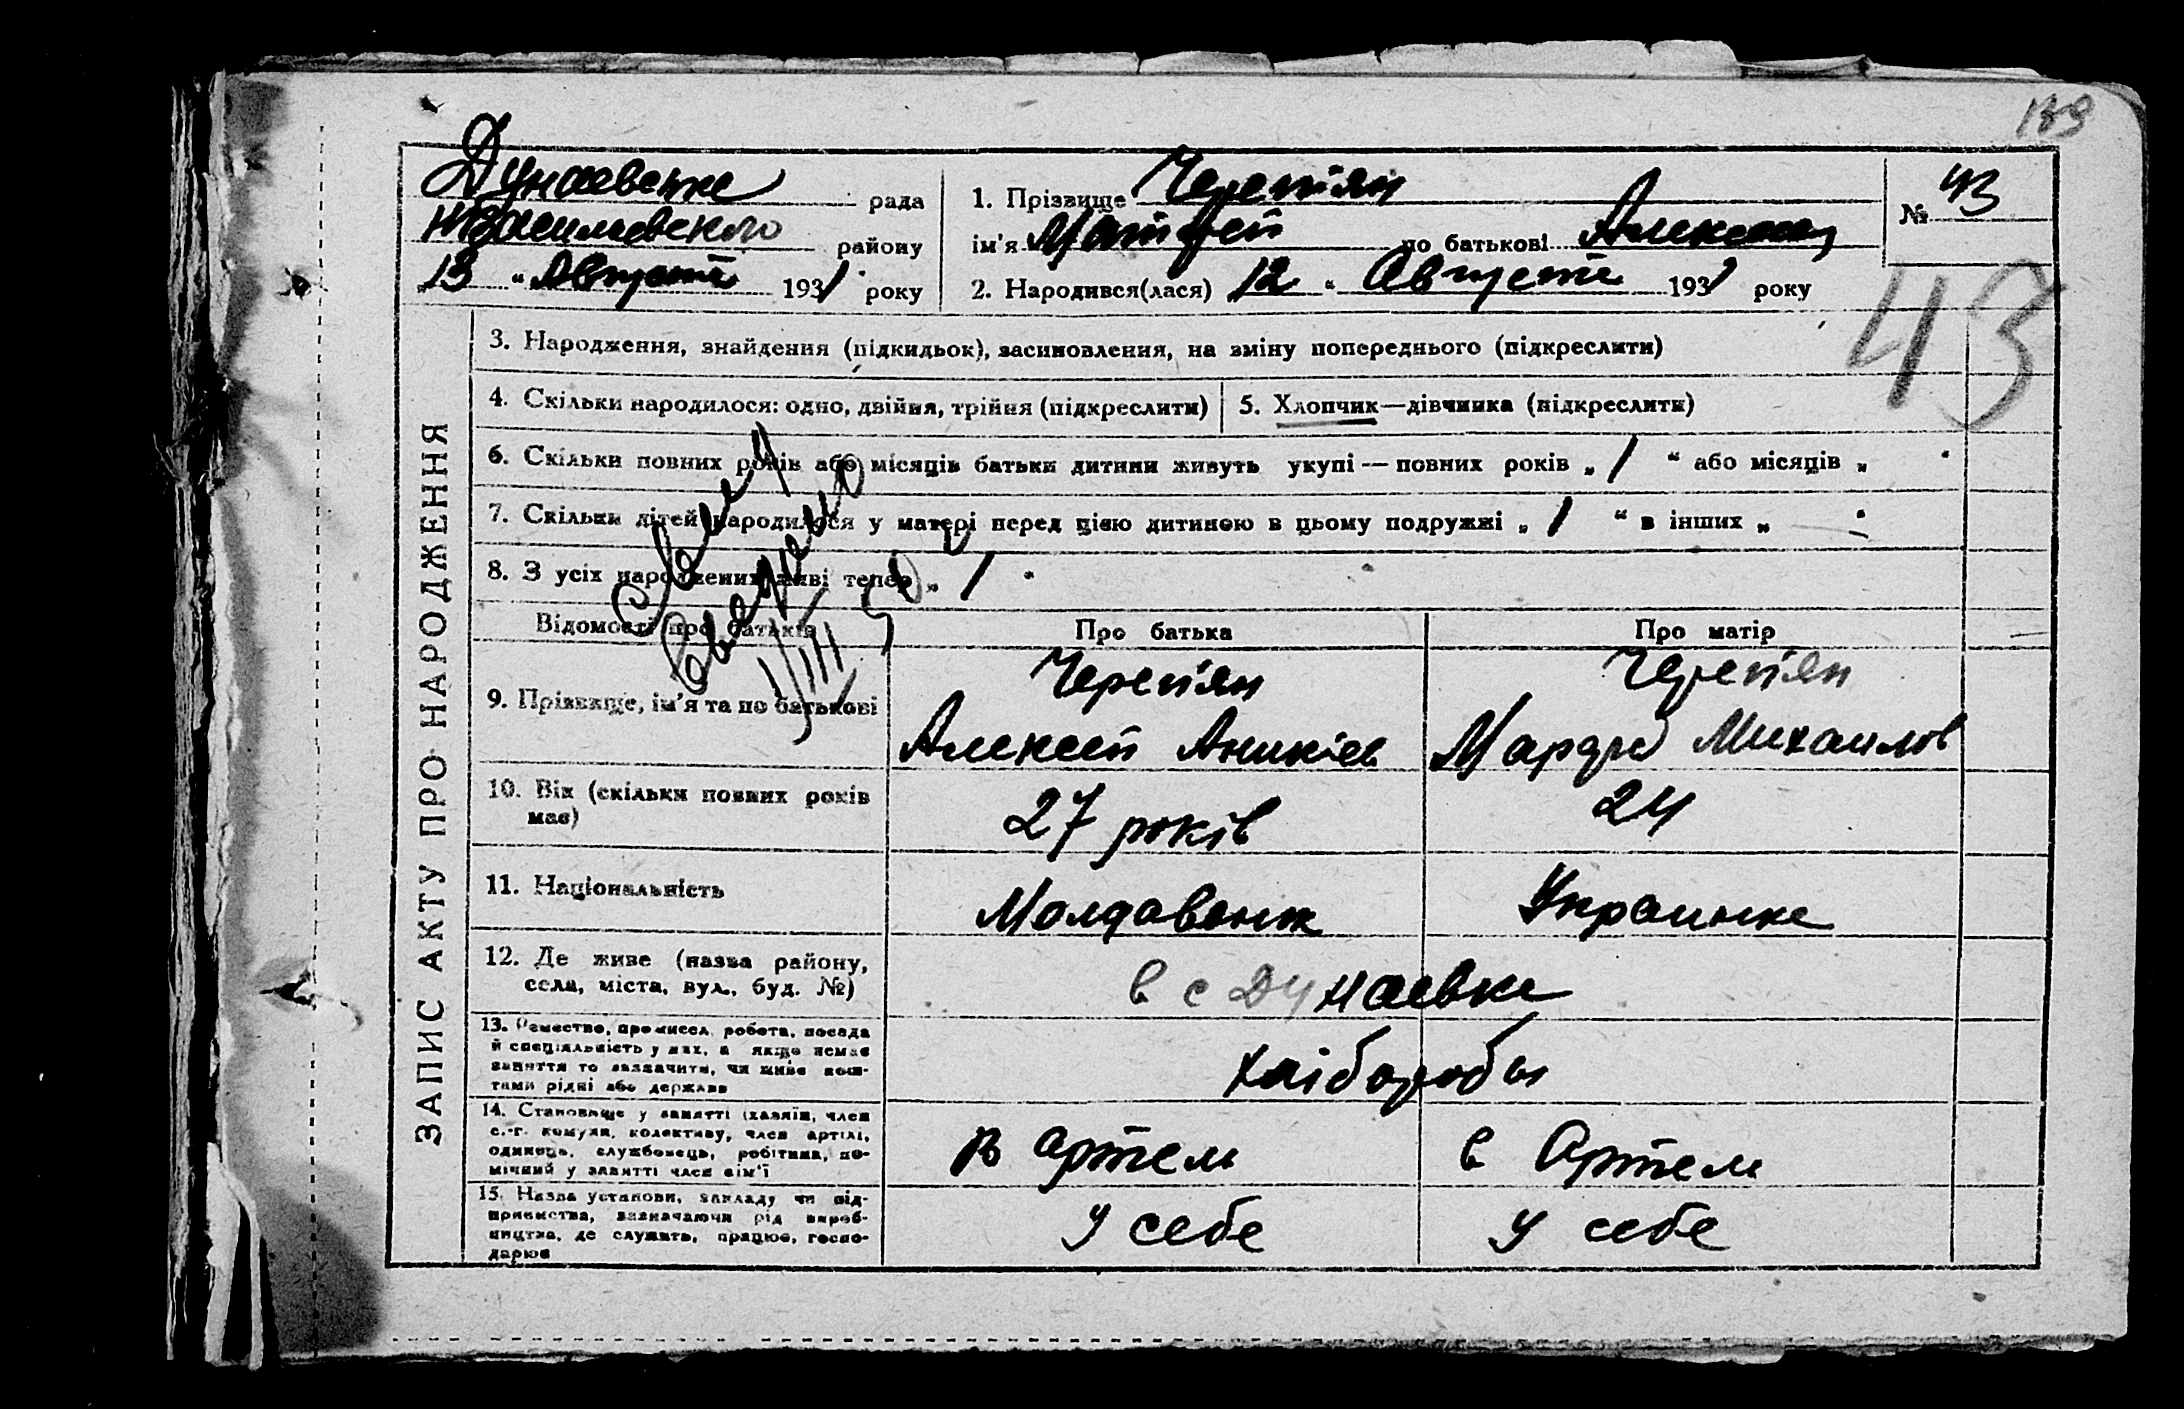 189
Дунаевське рада
района
13 " Августа 1931 року
1. Прізвище Черепян
ім'я Матфей по батькові
2. Народився(лася) 12 " Августа 1931 року
№ 43
43
ЗАПИС АКТУ ПРО НАРОДЖЕННЯ
3. Народження, знайдення (підкидьок), засиновлення, на зміну попереднього (підкреслити)
4. Скільки народилося: одно, двійня, трійня (підкреслити)
5. Хлопчик—дівчинка (підкреслити)
6. Скільки повних років або місяців батьки дитини живуть укупі — повних років „ 1 “ або місяців „ “
7. Скільки дітей народилося у матері перед цією дитиною в цьому подружжі „ 1 “ в інших „ — “
8. З усіх народжених живі тепер „ 1 “
Відомості про батьків
Про батька
Про матір
9. Прізвище, ім'я та по батькові
Черепян
Алексей Аникіев
Черепян
Михаилов
10. Вік (скільки повних років
має)
27 років
24
11. Національність
Молдаванж
Украинка
12. Де живе (назва району,
села, міста, вул., буд. №)
в с Дунаевке
13. Ремество, промисел, робота, посада
й спеціяльність у них, а якщо немає
заняття то зазначити, чи живе кош-
тами рідні або держави
хліборобы
14. Становище у занятті (хазяїн, член
с.-г. комуни, колективу, член артілі,
одинець, службовець, робітник, по-
мічний у занятті член сім'ї
в артели
в Артели
15. Назва установи, закладу чи під-
приємства, зазначаючи рід вироб-
ництва, де служить, працює, госпо-
дарює
у себе
у себе